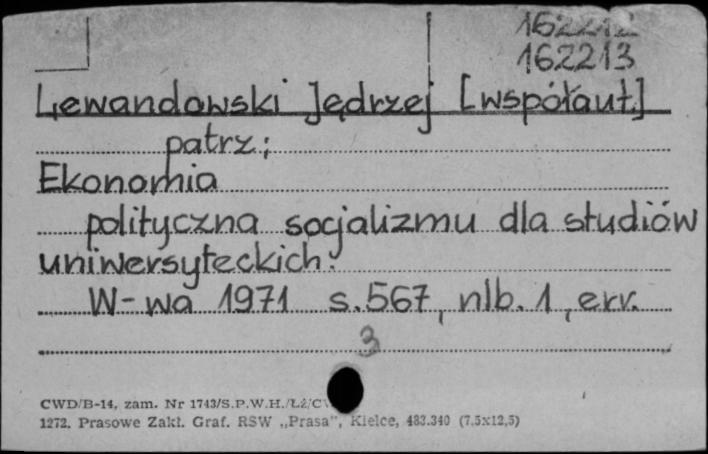 162212
162213
Lewandowski Jędrzej [współaut.]
patrz:
Ekonomia
polityczna socjalizmu dla studiów
uniwersyteckich.
W-wa 1971 s.567, nlb.1, err.
3
CWD/B-14, zam. Nr 1743/S.P.W.H./Łź/C
1272. Prasowe Zakł. Graf. RSW „Prasa”, Kielce, 483.340 (7,5x12,5)